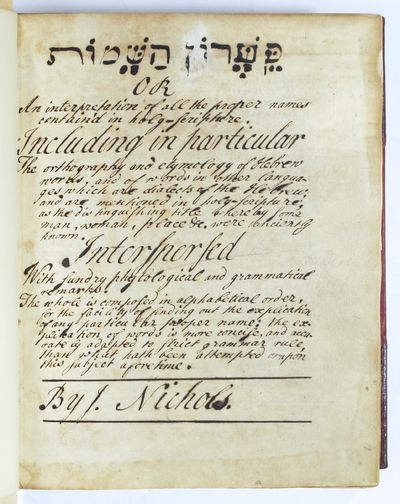 פִּתְרוֹן הַשֵּׁמוֹת
OR
An interpretation of all the proper names
contain'd in holy-scripture.
Including in particular
The orthography and etymology of Hebrew
words, and of words in other langua-
ges which are dialects of the Hebrew;
and are mentioned in holy-scripture;
as the distinguishing title whereby some
man, woman, place &c, were anciently
known.
Interspersed
With sundry phylological and grammatical
remarks.
The whole is composed in alphabetical order,
for the facility of finding out the explication
of any particular proper name; the ex-
plication of words is more concise, and accu-
rate is adapted to strict grammar rule,
than what hath been attempted upon
this subject aforetime.
By J. Nichols.